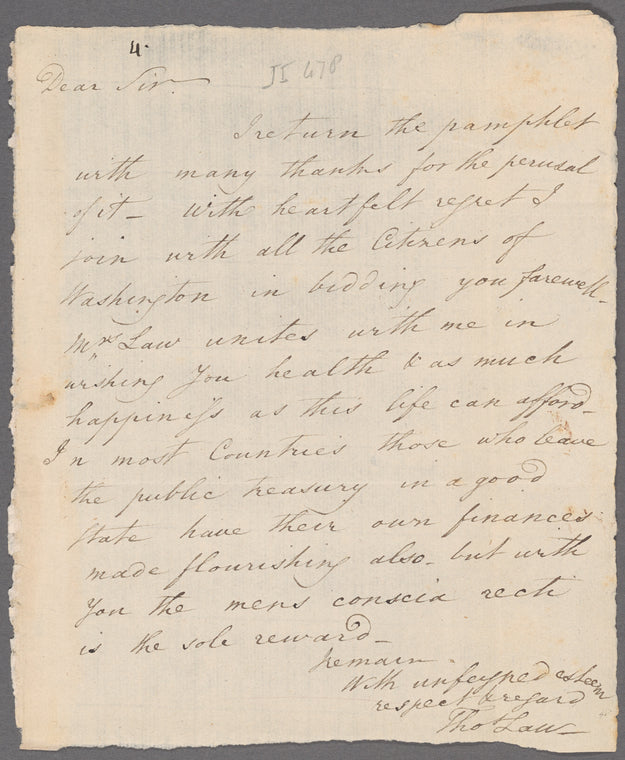 4.
Dear Sir.
I return the pamphlet
with many thanks for the perusal
of it – with heartfelt regret I
join with all the Citizens of
Washington in bidding you farewell –
Mrs Law unites with me in
wishing You health & as much
happiness as this life can afford –
In most Countries those who leave
the public treasury in a good
state have their own finances
made flourishing also – but with
you the mens conscia recti
is the sole reward –
I remain
With unfeyned esteem
respect & regard
Thos Law –